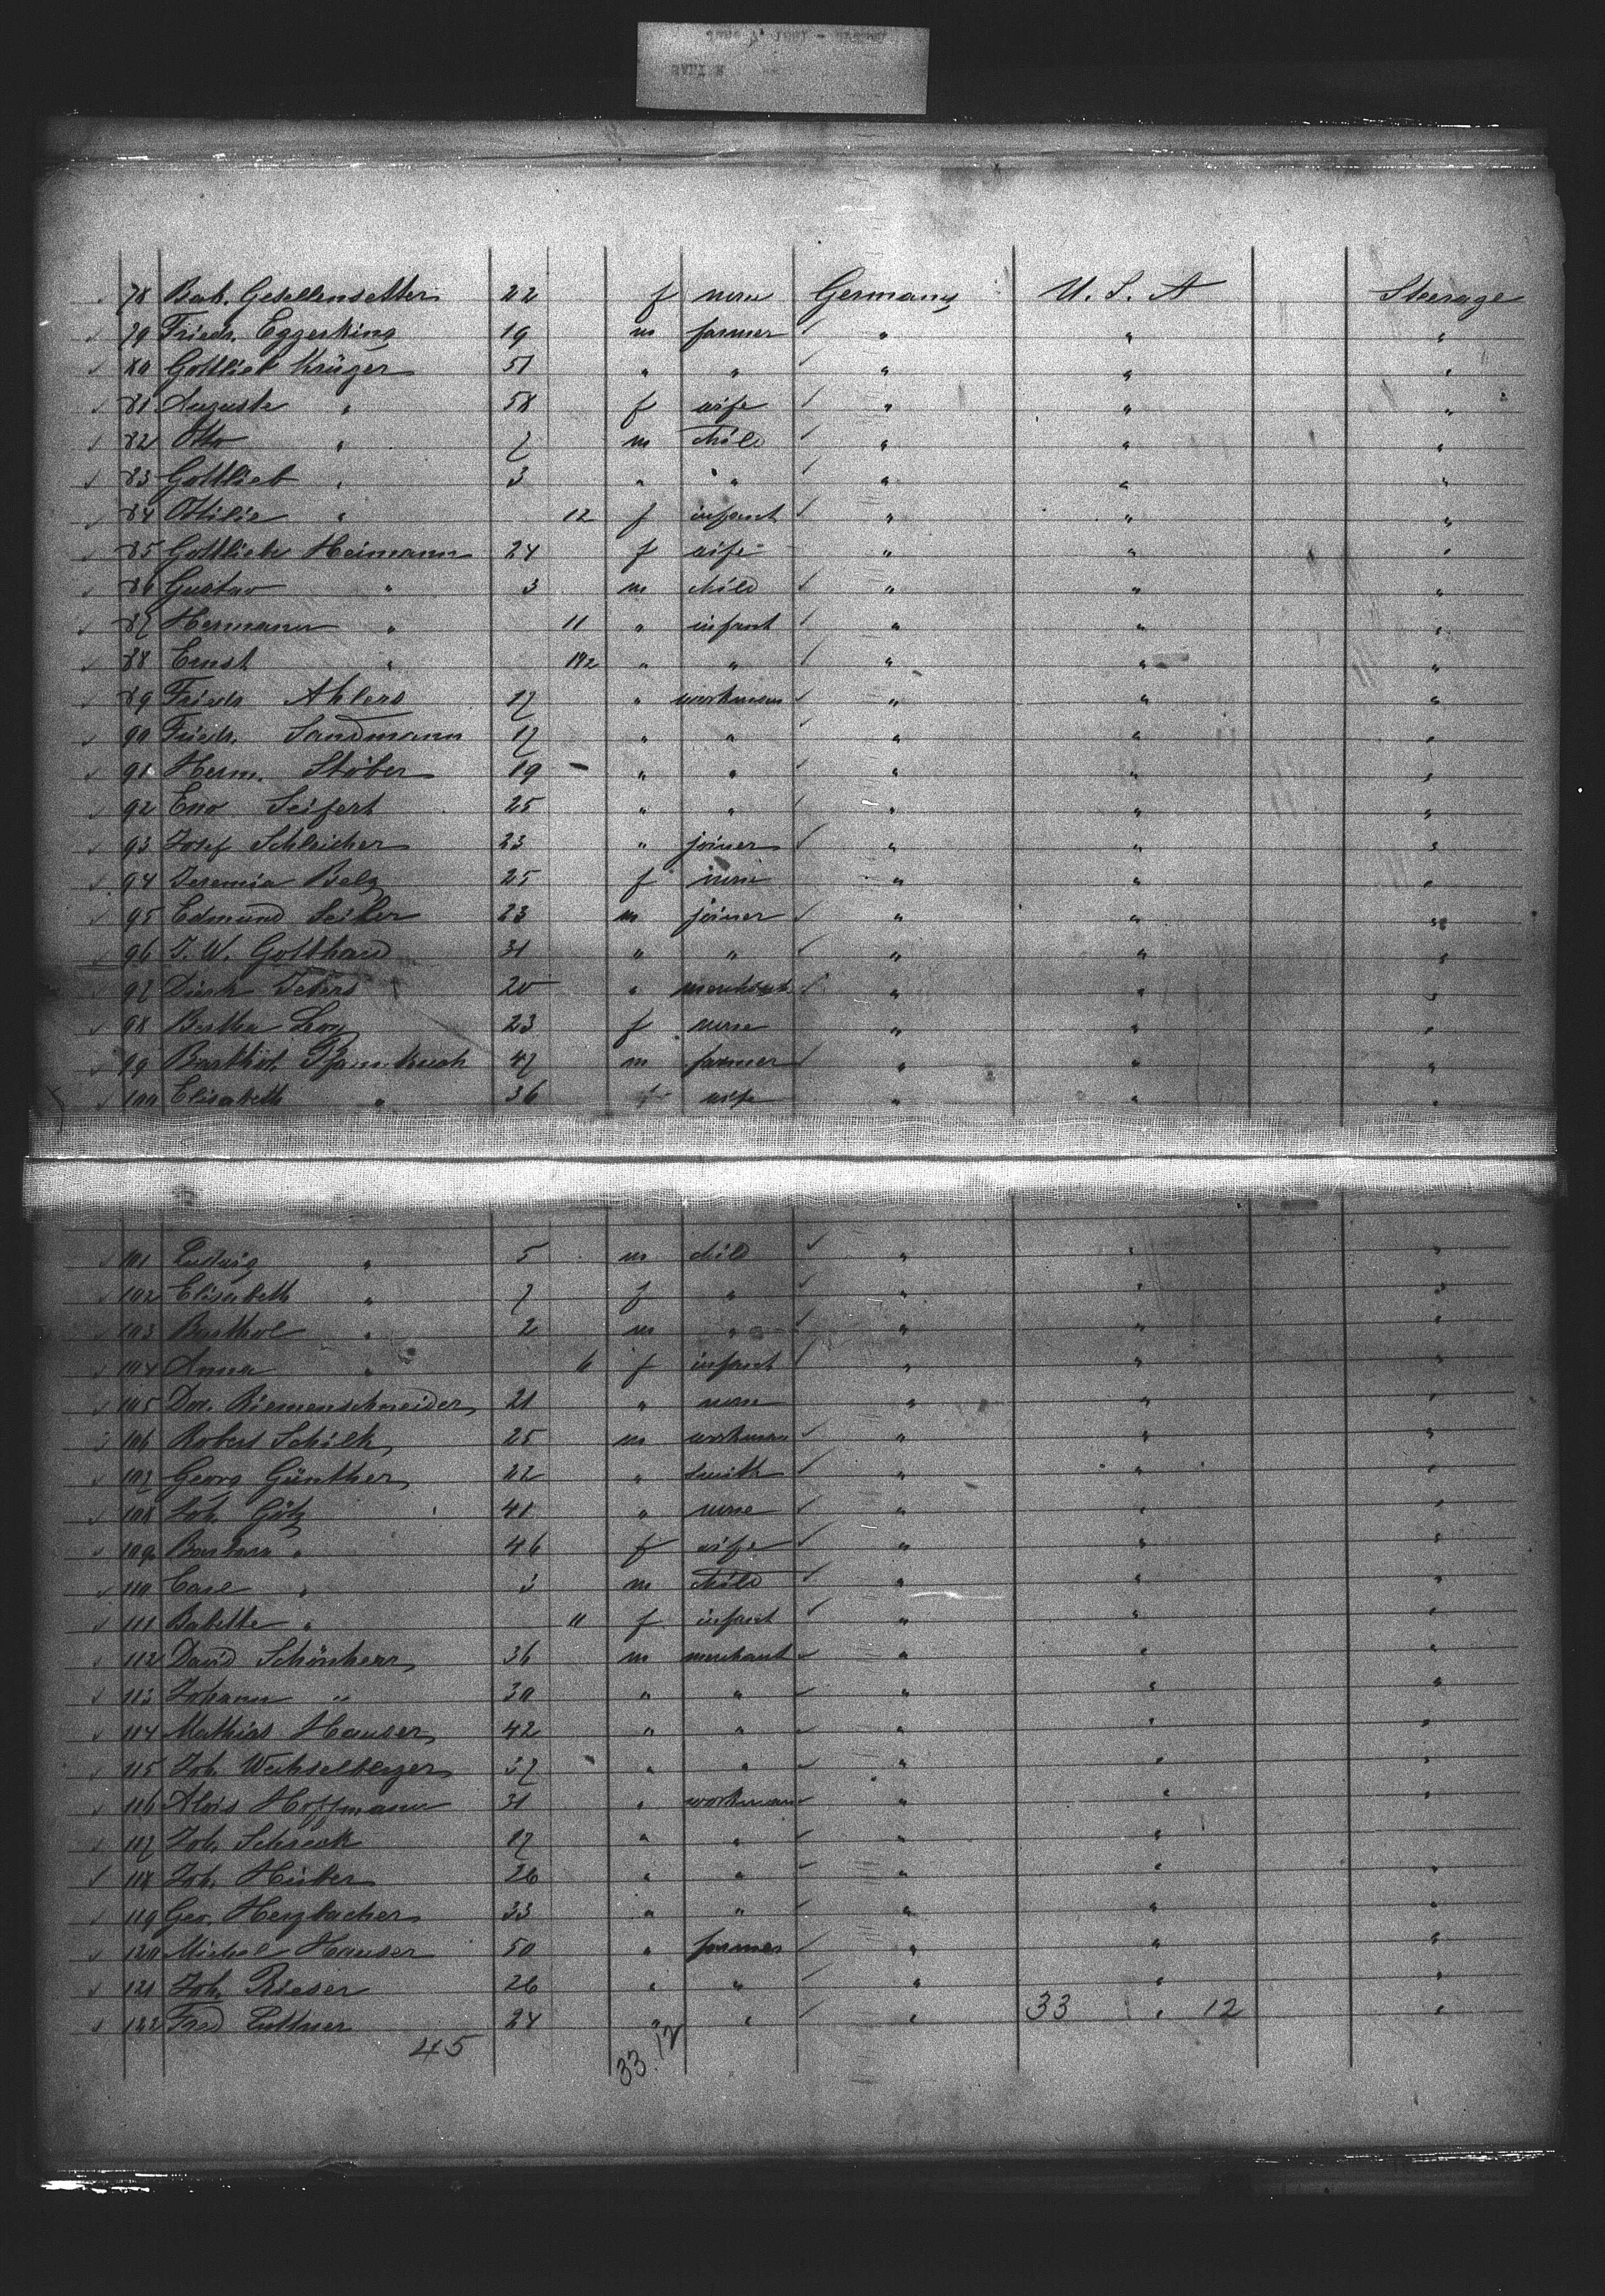 78 Bab. Gesellensetter 22 f none Germany U. S. A Steerage
79 Friedr. Eggerking 19 m farmer " " "
80 Gottlieb Krüger 51 " " " " "
81 Auguste " 58 f wife " " "
82 Otto " 7 m child " " "
83 Gottlieb " 3 " " " " "
84 Ottilie " 12 f infant " " "
85 Gottliebe Heimann 24 f wife " " "
86 Gustav " 3 m child " " "
87 Hermann " 11 " infant " " "
88 Ernst " " " " " "
89 Friedr Ahlers 17 " workman " " "
90 Friedr. Sandmann 17 " " " " "
91 Herm. Stöber 19 " " " " "
92 Eno Seifert 25 " " " " "
93 Josef Schleicher 23 " joiner " " "
94 Jeremia Belz 25 f none " " "
95 Edmund Seiler 23 m joiner " " "
96 J. W. Gotthard 31 " " " " "
97 Diedr 20 " merchant " " "
98 Bertha Loy 23 f none " " "
99 Barthol. 47 m farmer " " "
100 Elisabeth " 36 f wife " " "
101 Ludwig " 5 m child " " "
102 Elisabeth " 7 f " " " "
103 Barthol " 2 m " " " "
104 Anna " 6 f infant " " "
105 Dor. Riemenschneider 21 " none " " "
106 Robert Schilk 25 m workman " " "
107 Georg Günther 22 " smith " " "
108 Joh. Götz 41 " none " " "
109 Barbara " 46 f wife " " "
110 Carl " 3 m child " " "
111 Babette " 11 f infant " " "
112 David Schönherr 36 m merchant " " "
113 Johann " 30 " " " " "
114 Mathias Hauser 42 " " " " "
115 Joh. Wechselberger 37 " " " " "
116 Alois Hoffmann 31 " workman " " "
117 Joh. Schreck 17 " " " " "
118 Joh. 26 " " " " "
119 Geo. Herzbacher 33 " " " " "
120 Michel Hauser 50 " farmer " " "
121 Joh. Rieser 26 " " " " "
122 Fred Luttner 24 " " " 33 " 12 "
45 33.12